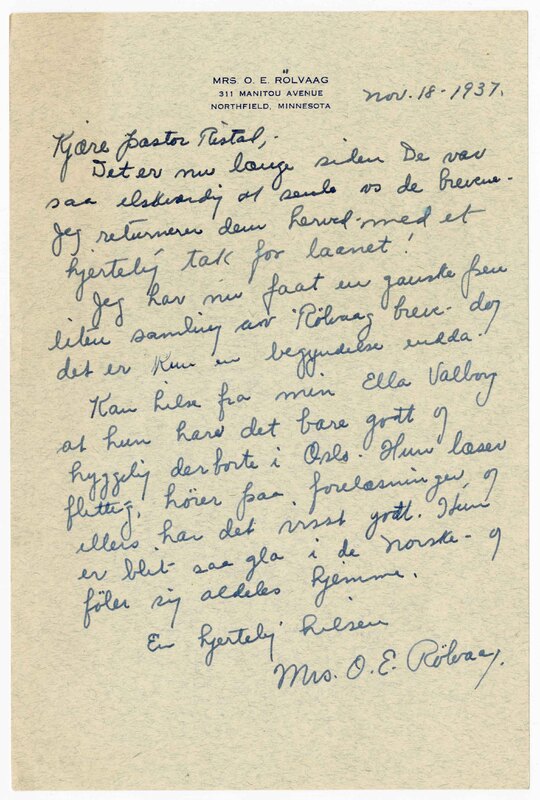 MRS. O. E. RÖLVAAG
311 MANITOU AVENUE
NORTHFIELD, MINNESOTA
Nov. 18 - 1937.
Kjære pastor Ristad,-
Det er nu længe siden De var
saa elskværdig at sende os de brevene.
Jeg returnerer dem herved - med et
hjertelig tak for laanet!
Jeg har nu faat en ganske pen
liten samling av Rölvaag breve - dog
det er kun en begyndelse endda.
Kan hilse fra min Ella Valborg
at hun har det bare godt og
hyggelig derborte i Oslo. Hun læser
flittig, hörer paa forelæsninger og
ellers har det visst godt. Hun
er blit saa gla i de norske - og
föler sig aldeles hjemme.
En hjertelig hilsen
Mrs. O. E. Rölvaag.